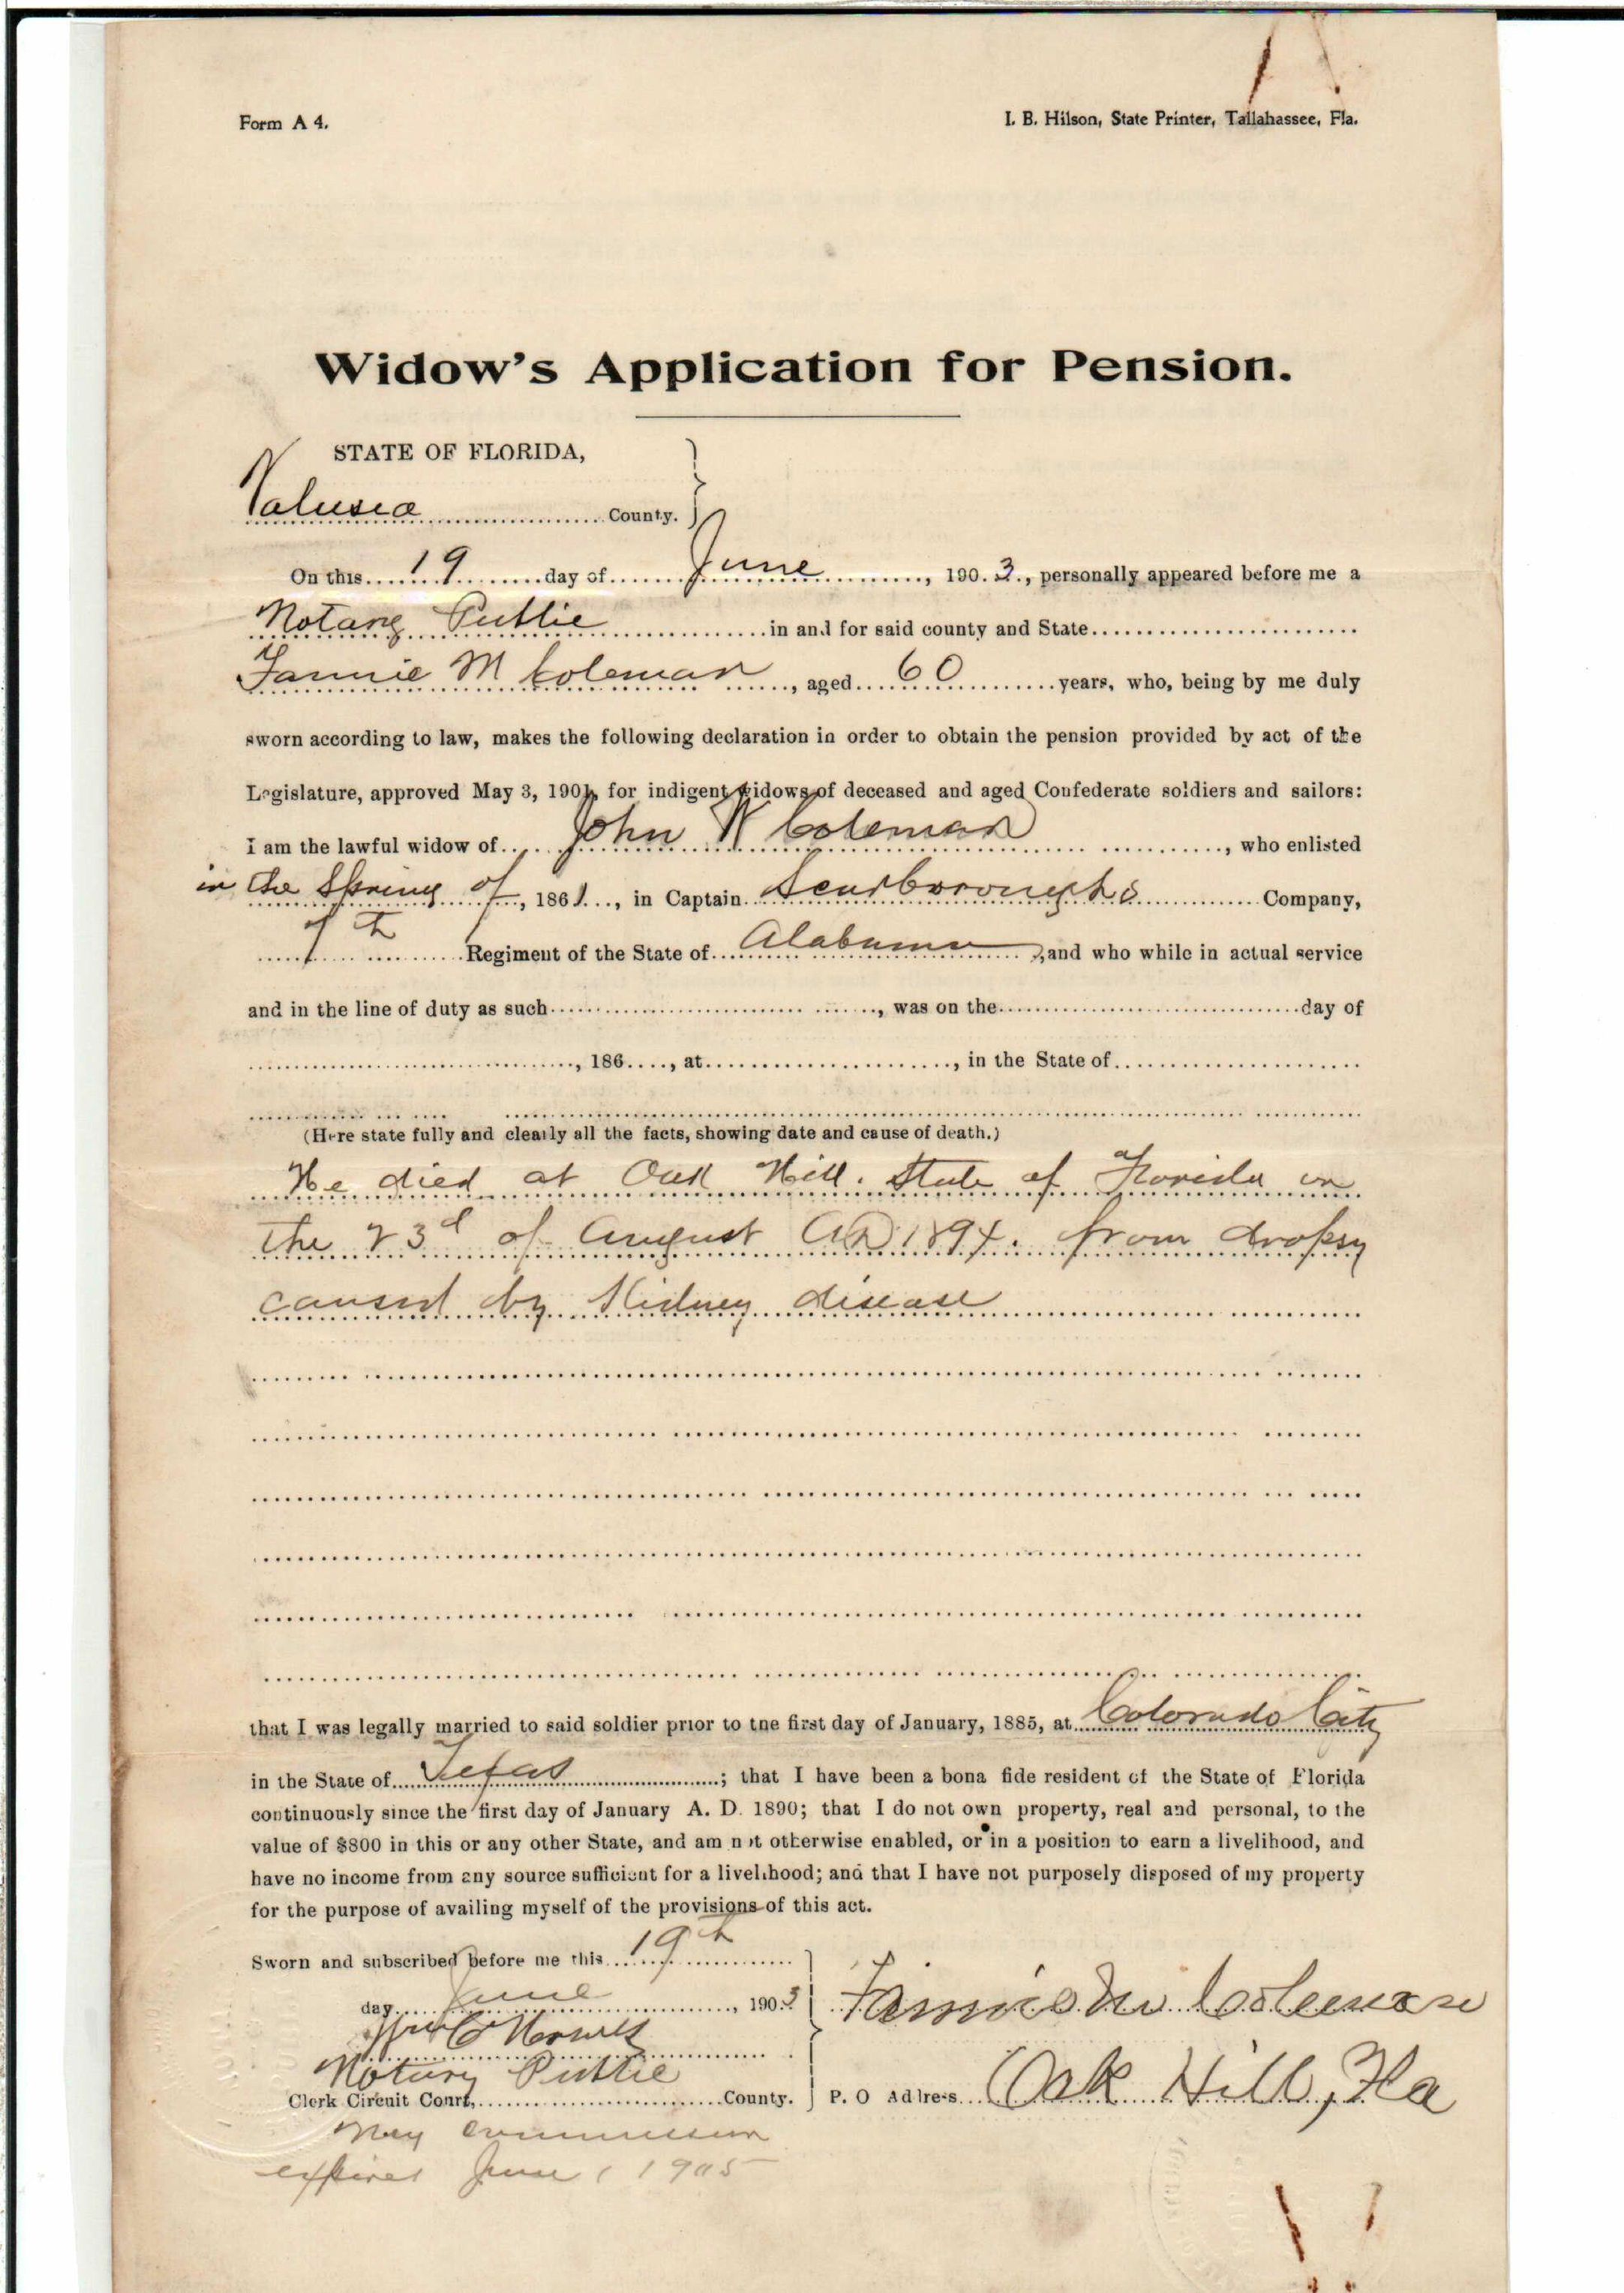 Form A 4.
I. B. Hilson, State Printer, Tallahassee, Fla.
Widow's Application for Pension.
STATE OF FLORIDA,
Volusia County.
On this 19 day of June, 1903, personally appeared before me a
Notary Public in and for said county and State
Fannie M Coleman, aged 60 years, who, being by me duly
sworn according to law, makes the following declaration in order to obtain the pension provided by act of the
Legislature, approved May 3, 1901, for indigent widows of deceased and aged Confederate soldiers and sailors:
I am the lawful widow of John W Coleman, who enlisted
in the Spring of, 1861, in Captain Scarboroughs Company,
7th Regiment of the State of Alabama, and who while in actual service
and in the line of duty as such, was on the day of
, 186, at, in the State of
(Here state fully and clearly all the facts, showing date and cause of death.)
He died at Oak Hill. State of Florida on
the 23d of August AD 1894. from dropsy
caused by Kidney disease
that I was legally married to said soldier prior to the first day of January, 1885, at Colorado City
in the State of Texas; that I have been a bona fide resident of the State of Florida
continuously since the first day of January A. D. 1890; that I do not own property, real and personal, to the
value of $800 in this or any other State, and am not otherwise enabled, or in a position to earn a livelihood, and
have no income from any source sufficient for a livelihood; and that I have not purposely disposed of my property
for the purpose of availing myself of the provisions of this act.
Sworn and subscribed before me this 19th
day June, 1903
Fannie M Coleman
Wm C
Notary Public
Clerk Circuit Court, County.
P. O Address Oak Hill, Fla
May commission
expires June 1 1905